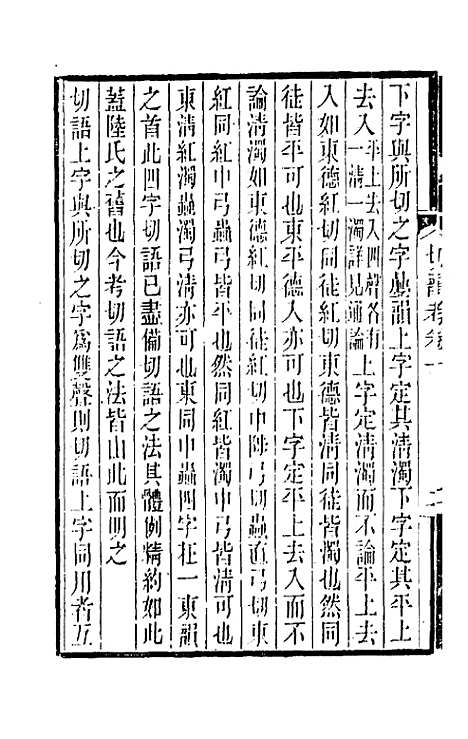 下字與所切之字疊韻上字定其清濁下字定其平上
去入平上去入四聲各有一清一濁詳見通論上字定清濁而不論平上去
入如東德紅切同徒紅切東德皆清同徒皆濁也然同
徒皆平可也東平德入亦可也下字定平上去入而不
論清濁如東德紅切同徒紅切中陟弓切蟲直弓切東
紅同紅中弓蟲弓皆平也然同紅皆濁中弓皆清可也
東清紅濁蟲濁弓清亦可也東同中蟲四字在一東韻
之首此四字切語已盡備切語之法其體例精約如此
蓋陸氏之舊也今考切語之法皆由此而明之
切語上字與所切之字爲雙聲則切語上字同用者互
切韻考卷一
二